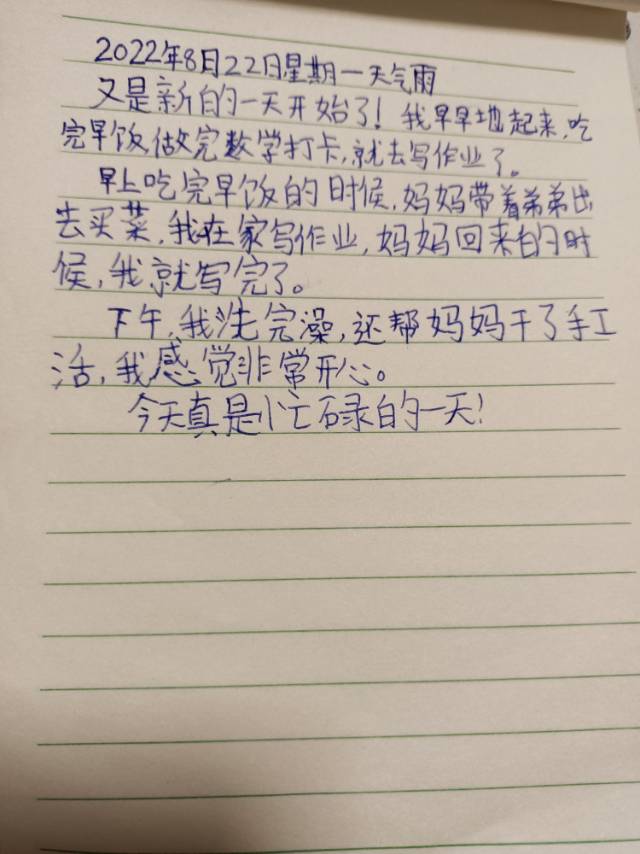 2022年8月22日星期一天气雨
又是新的一天开始了！我早早地起来，吃
完早饭，做完数学打卡，就去写作业了。
早上吃完早饭的时候，妈妈带着弟弟出
去买菜，我在家写作业，妈妈回来的时
候，我就写完了。
下午，我洗完澡，还帮妈妈干了手工
活，我感觉非常开心。
今天真是忙碌的一天！